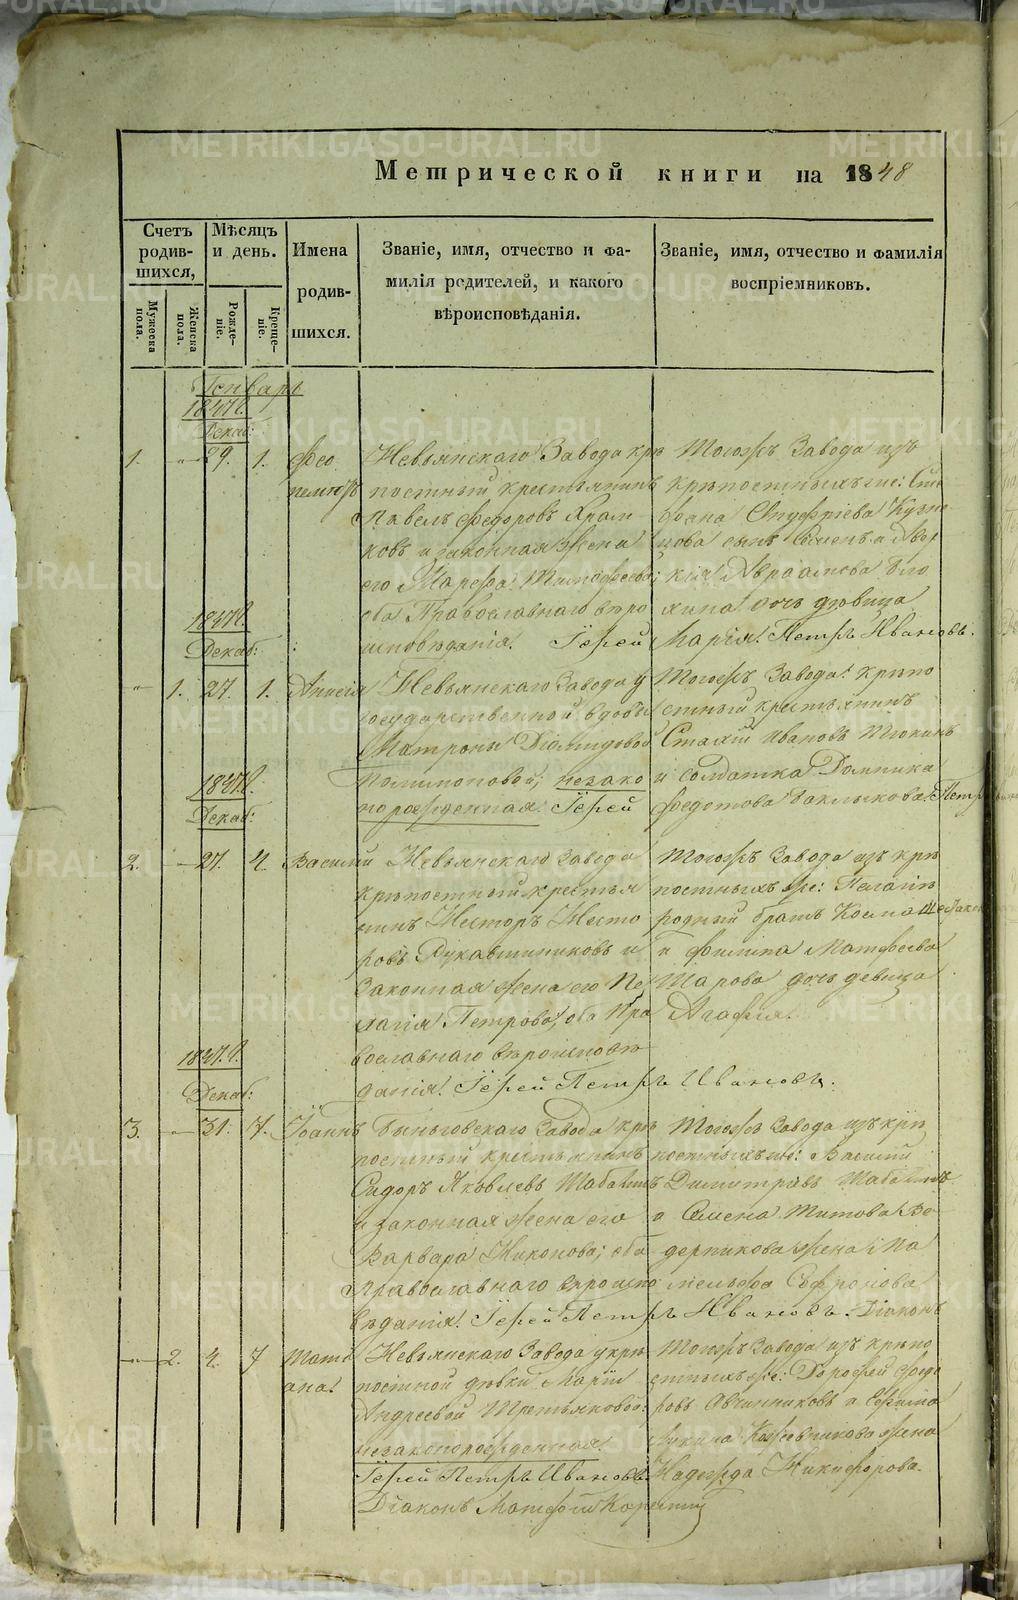 Метрической книги на 1848
Счетъ родив- шихся,
Мѣсяцъ и день.
Имена родив- шихся.
Званіе, имя, отчество и фа-
милія родителей, и какого
вѣроисповѣданія.
Званіе, имя, отчество и фамилія
воспріемниковъ.
Мужеска пола.
Женска пола.
Рожде- ніе.
Креще- ніе.
Генварь
1847 г.
Декаб:
1. -"- 29. 1. Фео
пемптъ
Невьянскаго Завода крѣ
постный крестьянинъ
Павелъ Федоровъ Храм
ковъ и законная жена
его Марфа Тимофеева;
оба Православнаго вѣро
исповѣданія. Іерей
Тогожъ Завода изъ
крѣпостныхъ же: Сте
фана Онуфріева Кузне
цова сынъ Семенъ и Авер
кія Авраамова
дочь дѣвица
Марія. Петръ Ивановъ.
1847 г.
Декаб:
-"- 1. 27. 1. Анисія
Невьянскаго Завода у
государственной вдовы
Матроны Діомидовой
незако
норожденная. Іерей
Тогожъ Завода крѣпо
стный крестьянинъ
Ивановъ
и солдатка Домника
Федотова Баклыкова. Петръ
1847 г.
Декаб:
2. -"- 27. 4. Василій
Невьянскаго Завода
крѣпостный крестья
нинъ Несторъ Несто
ровъ Рукавишниковъ и
Законная жена его Пе
лагія Петрова, оба Пра
вославнаго вѣроисповѣ
данія. Іерей Петръ Ивановъ.
Тогожъ Завода изъ крѣ
постныхъ же: Пелагіи
родный братъ Косма
и Филипа Матфеева
Шарова дочь девица
Агафія.
1847. г.
Декаб:
3. -"- 31. 7. Іоаннъ
Быньговскаго Завода крѣ
постный крестьянинъ
Сидоръ Яковлевъ Шабалинъ
и законная жена его
Варвара Никонова; оба
Православнаго вѣроиспо
вѣданія. Іерей Петръ Ивановъ. Діаконъ
Тогоже Завода изъ крѣ
постныхъ же: Василій
Димитріевъ Шабалинъ
а Семена Титова Ве
дерникова жена Ма
мельфа Софронова
-"- 2. 4. 7 Тати
ана.
Невьянскаго Завода у крѣ
постной дѣвки Маріи
Андреевой Третьяковой:
незаконорожденная.
Іерей Петръ Ивановъ.
Діаконъ Матфей
Тогожъ Завода изъ крѣпо
стныхъ же: Дорофей Федо
ровъ Овчинниковъ а Ефима
Лукина Кожевникова жена
Надежда Никифорова.